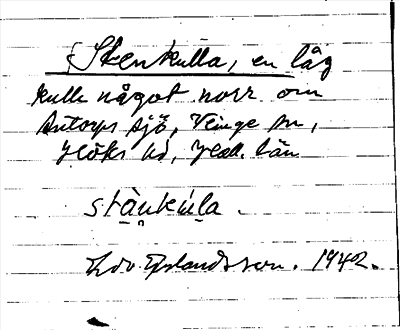 Stenkulla, en låg
kulle något norr om
Antorps sjö, Veinge sn,
Höks hd, Hall. län
stànkúla.
Edv. 1942.